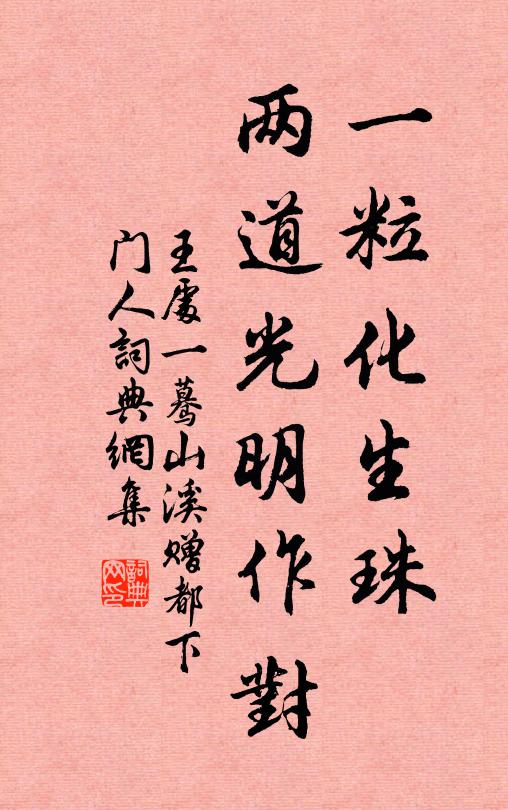 一粒化生珠
两道光明作對
王處一蓦山溪赠都下
门人詞典網集
詞典
网印